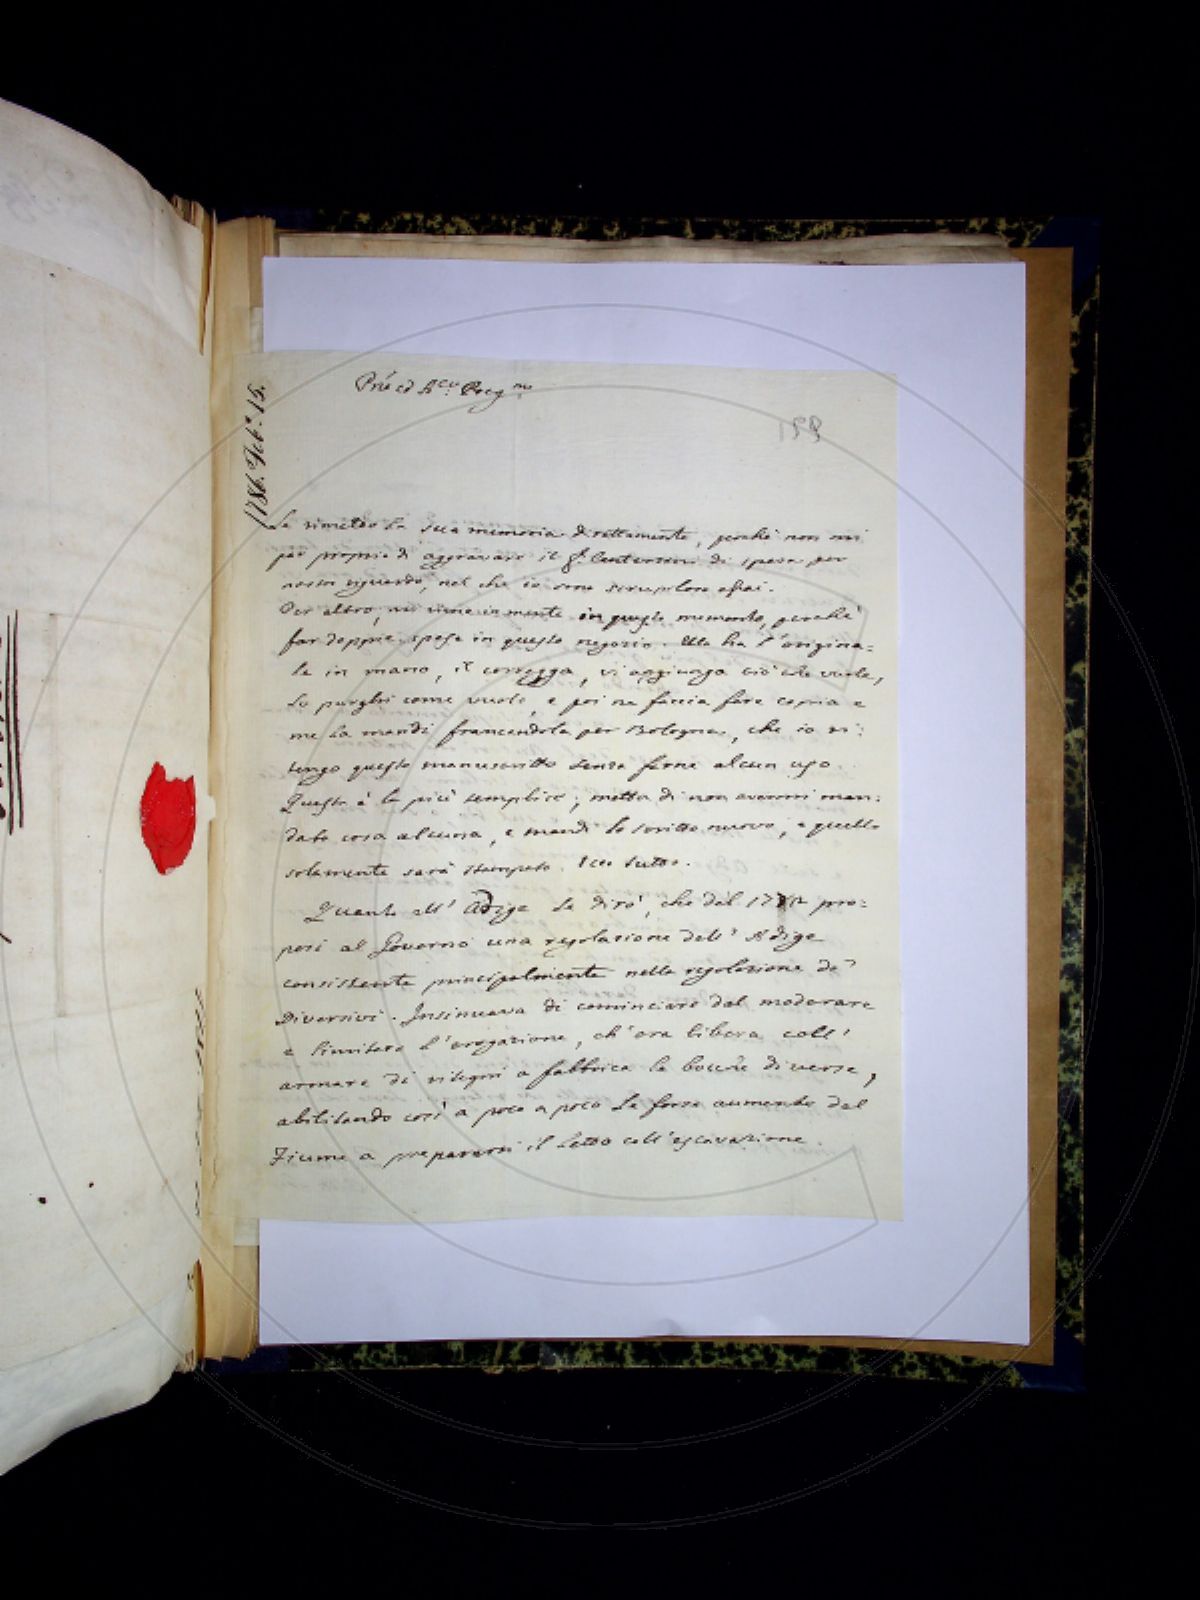 1786. Feb.º 15.
Le rimetto la sua memoria direttamente, perchè non mi
par proprio di aggravare il Sr. di spesa per
nostro riguardo, nel che io sono scrupoloso assai.
Per altro, mi viene in mente in questo momento, perchè
far doppia spesa in questo negozio. Ella ha l'origina=
le in mano, il corregga, vi aggiunga ciò che vuole,
lo purghi come vuole, e poi ne faccia fare copia e
me la mandi francandola per Bologna, che io ri:
tengo questo manuscritto senza farne alcun uso.
Questo è lo più semplice; metta di non avermi man:
dato cosa alcuna, e mandi lo scritto nuovo, e quello
solamente sarà stampato. Ecco tutto.
Quanto all' Adige Le dirò, che del pro=
posi al Governo una regolazione dell' Adige
consistente principalmente nella regolazione de'
Diversivi. Insinuava di cominciare dal moderare
e limitare l'erogazione, ch'era libera coll'
armare di ritegni a fabbrica le bocche diverse,
abilitando così a poco a poco le forze aumentate del
Fiume a prepararsi il letto coll'escavazione.